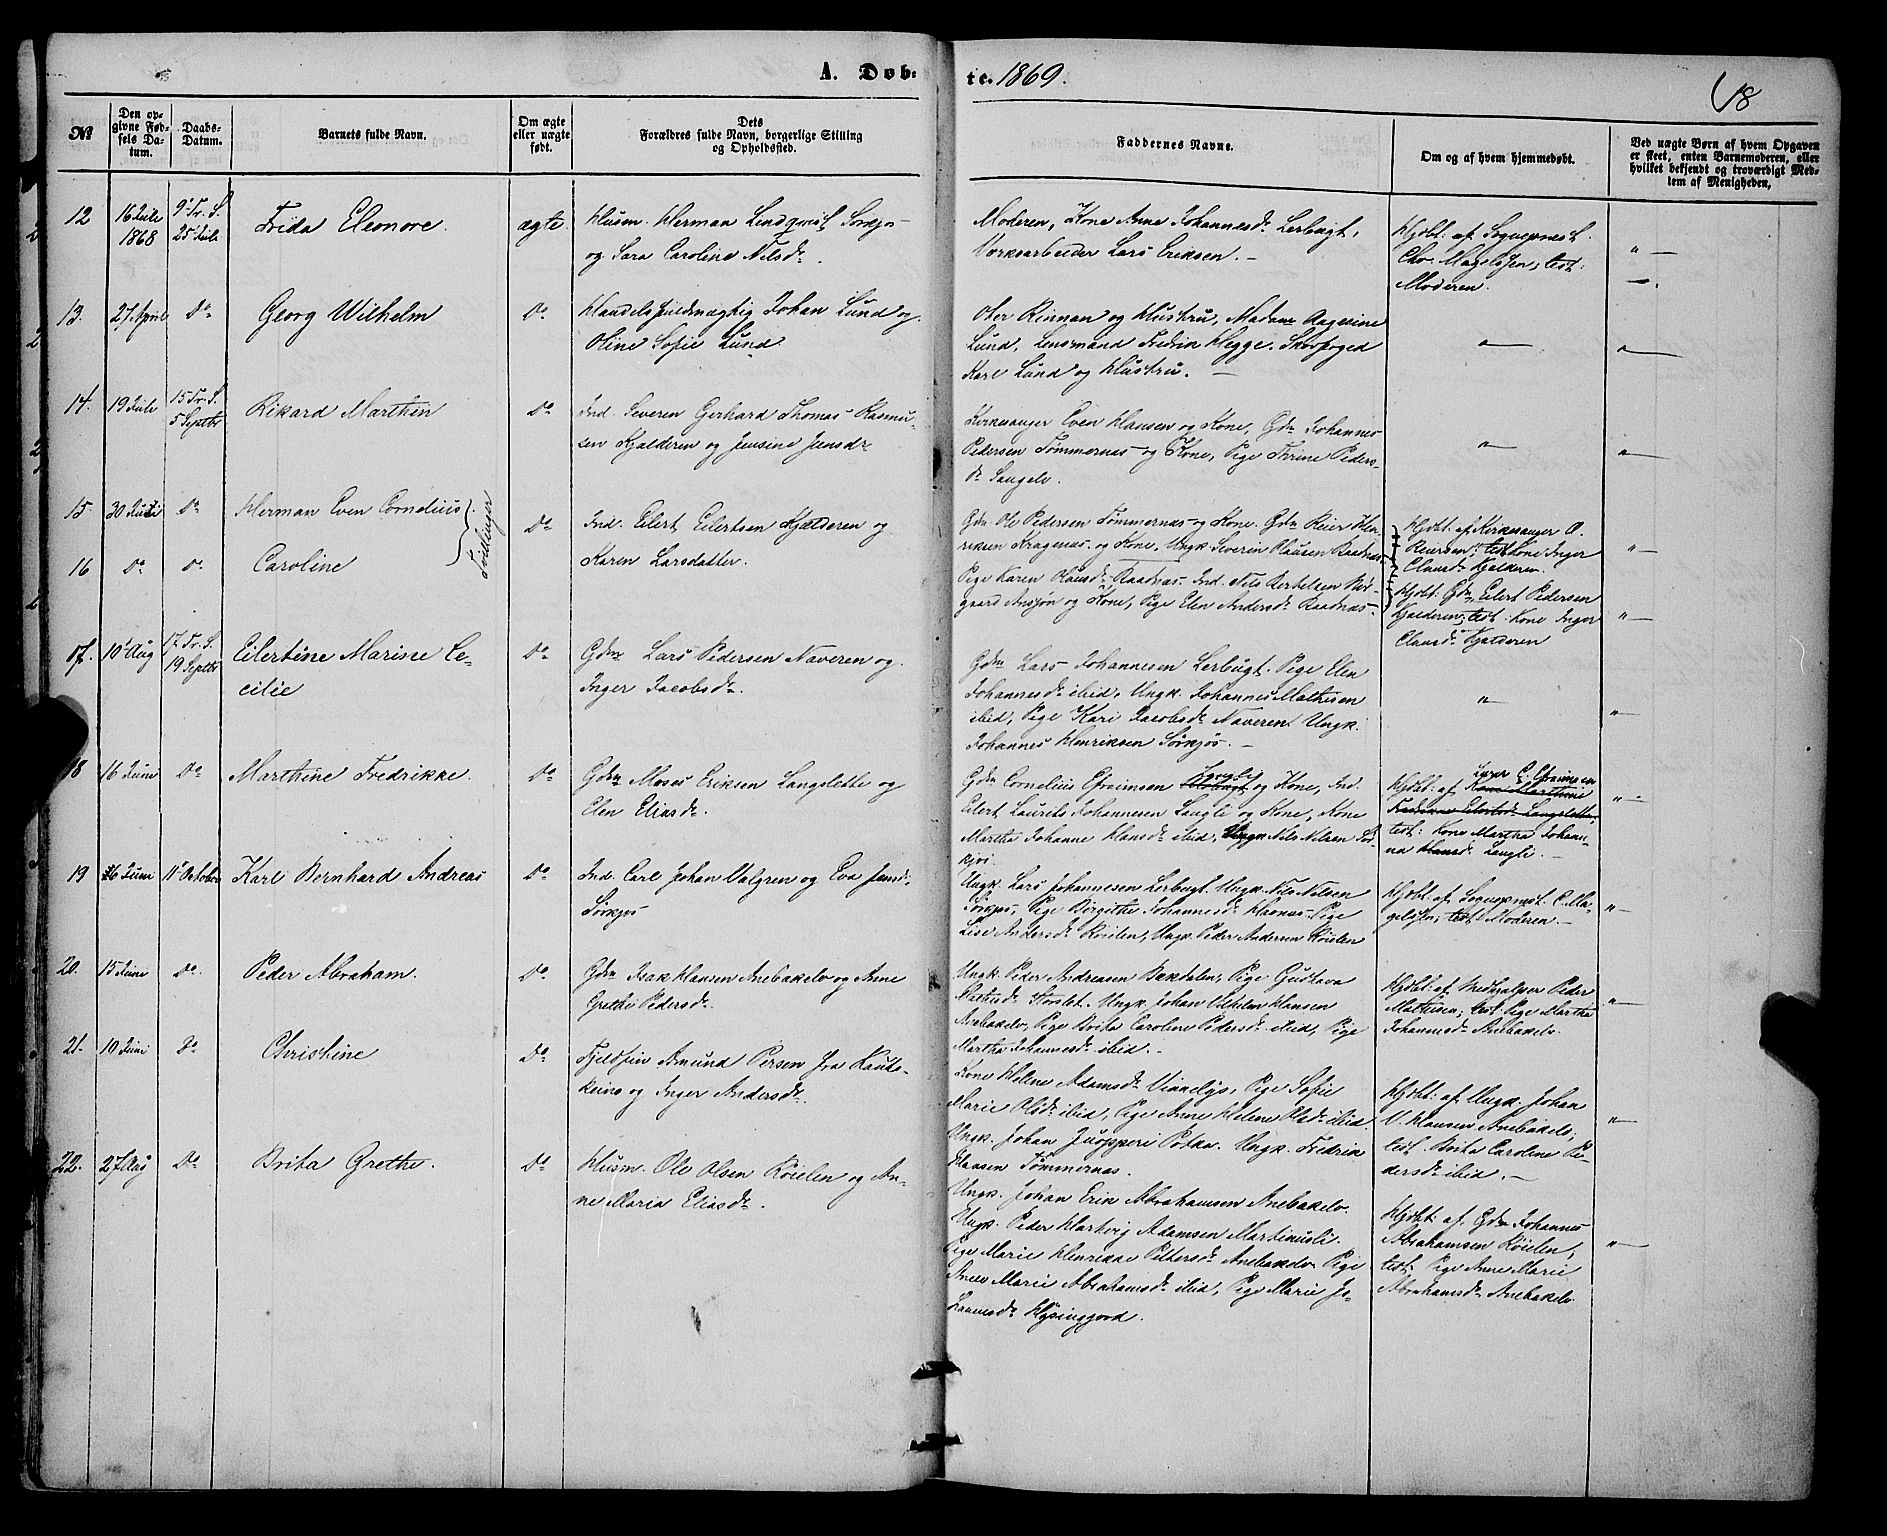 A. Døb-
te. 1869.
68
№
Den op-
givne Fød-
sels Da-
tum.
Daabs-
Datum.
Barnets fulde Navn.
Om ægte
eller uægte
født.
Dets
Forældres fulde Navn, borgerlige Stilling
og Opholdssted.
Faddernes Navne.
Om og af hvem hjemmedøbt.
Ved uægte Børn af hvem Opgaven
er skeet, enten Barnemoderen, eller
hvilket bekjendt og troværdigt Med-
lem af Menigheden.
12
16 Juli
1868
9' Tr. S.
25 Juli
Frida Eleonore.
ægte
Husm. Herman Lindqvist Sørkjos
og Sara Caroline Nilsdr.
Moderen, Kone Anne Johannesdr Lerbugt,
Værksarbeider Lars Eriksen. —
Hjdbt: af Sognepræst
Chr. Magelssen; test:
Moderen.
" —
—.
13.
27 April
Do
Georg Wilhelm
Do
Handelsfuldmægtig Johan Lund og
Oline Sofie Lund.
Rinnan og Hustru, Madam Aagesine
Lund, Lensmand Fredrik Hegge, Skovfoged
Karl Lund og Hustru. —
" —
" —
14.
19 Juli
15 Tr. S.
5 Septbr
Rikard Marthin
Do
Ind. Severen Gerhard Thomas Rasmu-
sen Kjælderen og Jensine Jensdr
Kirkesanger Even Hansen og Kone, Gdm Johannes
Pedersen Tømmernæs og Kone, Pige Thrine Peders-
dr Langelv.
" —
" —
15
30 Juli
Do
Herman Even Cornelius
Tvillinger
Do
Ind. Eilert Eilertsen Kjælderen og
Karen Larsdatter.
Gdm Ole Pedersen Tømmernæs og Kone. Gdm Reier Hen-
riksen Kragenæs og Kone, Ungk. Severin Olausen Raadnæs.
Hjdbt: af Kirkesanger O.
Reiersen; test Kone Inger
Clausdr Kjælderen.
" —
16
Do
Do
Caroline
Pige Karen Olausdr Raadnæs. Ind. Nils Bertelsen Nør-
gaard Ansjøn og Kone, Pige Elen Andersdr Raadnæs —
Hjdbt: Gdm, Eilert Pedersen
Kjælderen; test: Kone Inger
Clausdr Kjælderen
" —
17.
10 Aug
17 Tr. S.
19 Septbr
Eilertine Marine Ce-
cilie
Do
Gdm Lars Pedersen Naveren og
Inger Jacobsdr.
Gdm Lars Johannesen Lerbugt. Pige Elen
Johannesdr ibid, Ungk. Johannes Mathisen
ibid, Pige Kari Jacobsdr Naveren Ungk.
Johannes Henriksen Sørkjos. —
" —
" —
18
16 Juni
Do
Marthine Fredrikke.
Do
Gdm Moses Eriksen Langslette og
Elen Eliasdr.
Gdm Cornelius Efraimsen Langli og Kone, Ind.
Eilert Laurits Johannesen Langli og Kone, Kone
Martha Johanne Hansdr ibid, Ungk Nils Nilsen Sør-
kjos.
Hjdbt: af Kone Marthine
C. Efraimsen
test: Kone Martha Johan-
na Hansdr Langli. —
" —
19
26 Juni
11 October
Karl Bernhard Andreas
Do
Ind. Carl Johan Valgren og Eva Jensdr.
Sørkjos
Ungk. Lars Johannesen Lerbugt. Ungk. Nils Nilsen
Sørkjos, Pige Birgitha Johannesdr Havnnæs. Pige
Lise Andersdr Röielen, Ungk. Peder Andersen Röielen
Hjdbt: af Sognepræst C. Ma-
gelssen; test: Moderen. —
" —
20.
15 Juni
Do.
Peder Abraham.
Do
Gdm Isak Hansen Anebakelv og Anne
Grethe Pedersdr.
Ungk. Peder Andreasen Bækdalen, Pige Gustava
Storslet. Ungk. Johan Vilhelm Hansen
Anebakelv, Pige Brita Caroline Pedersdr ibid, Pige
Martha Johannesdr ibid. —
Hjdbt: af Medhjælper Peder
Mathisen; test Pige Martha
Johannesdr Anebakelv.
" —
21.
10 Juni
Do
Christine
Do
Fjeldfin Amund Persen fra Kauto-
keino og Inger Andersdr.
Kone Helene Adamsdr Vinnelys, Pige Sofie
Marie Olsdr ibid, Pige Anne Helene Olsdr ibid.
Ungk. Johan Juopperi Potka. Ungk. Fredrik
Hansen Tømmernæs.
Hjdbt: af Ungk. Johan
V. Hansen Anebakelv;
test. Brita Caroline Pe-
dersdr ibid. —
" —
22.
27 Aug
Do
Brita Grethe.
Do
Husm. Ole Olsen Röielen og An-
ne Maria Eliasdr.
Ungk. Johan Erik Abrahamsen Anebakelv.
Ungk. Peder Hartvig Adamsen Martinusli.
Pige Marie Henrikke Pettersdr Anebakelv. Pige
Anne Marie Abrahamsdr ibid, Pige Marie Jo-
hannesdr Hysinggjord.
Hjdbt: af Gdm Johannes
Abrahamsen Röielen;
test: Pige Anne Marie
Abrahamsdr Anebakelv.
" —